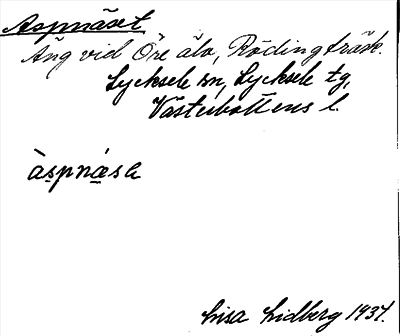 Aspnäset
Äng vid Öre älv, Rödingträsk.
Lycksele sn, Lycksele tg,
Västerbottens l.
àspnǻsa
Lisa Lidberg 1937.